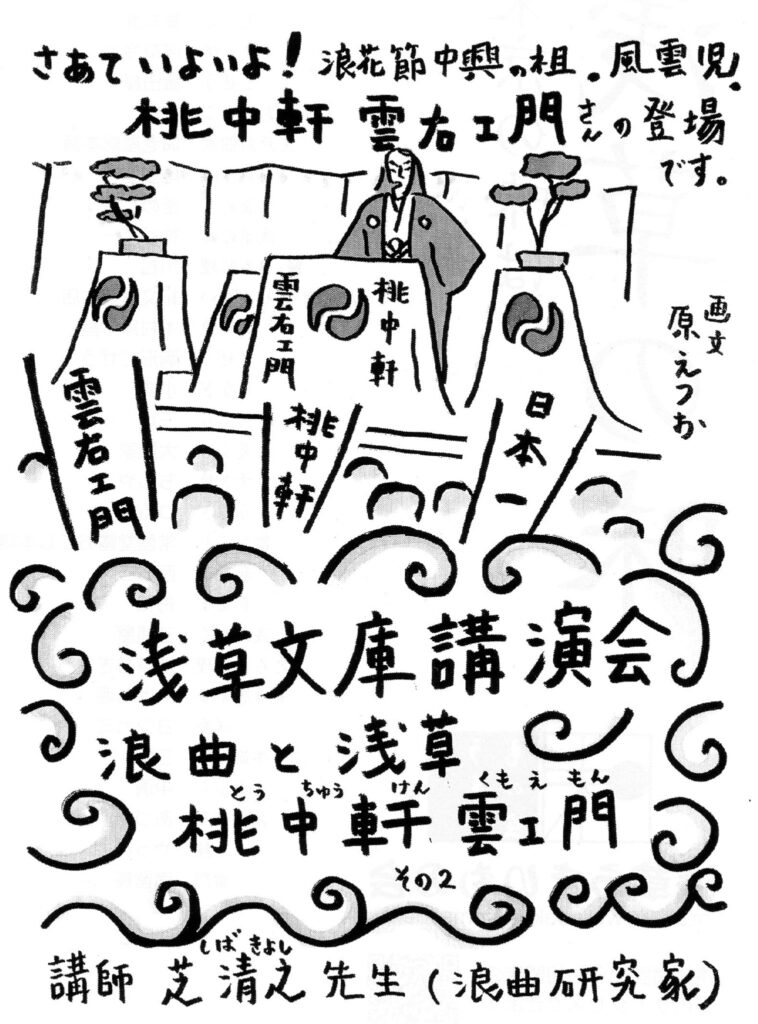 さあていよいよ！浪花節中興の祖。風雲児、
桃中軒雲右エ門さんの登場
です。
画文
原えつお
雲右エ門
桃中軒
雲右エ門
桃中軒
日本一
浅草文庫講演会
浪曲と浅草
とう ちゅう けん くも え もん
桃中軒雲エ門
その2
しば きよし
講師 芝清之先生(浪曲研究家)